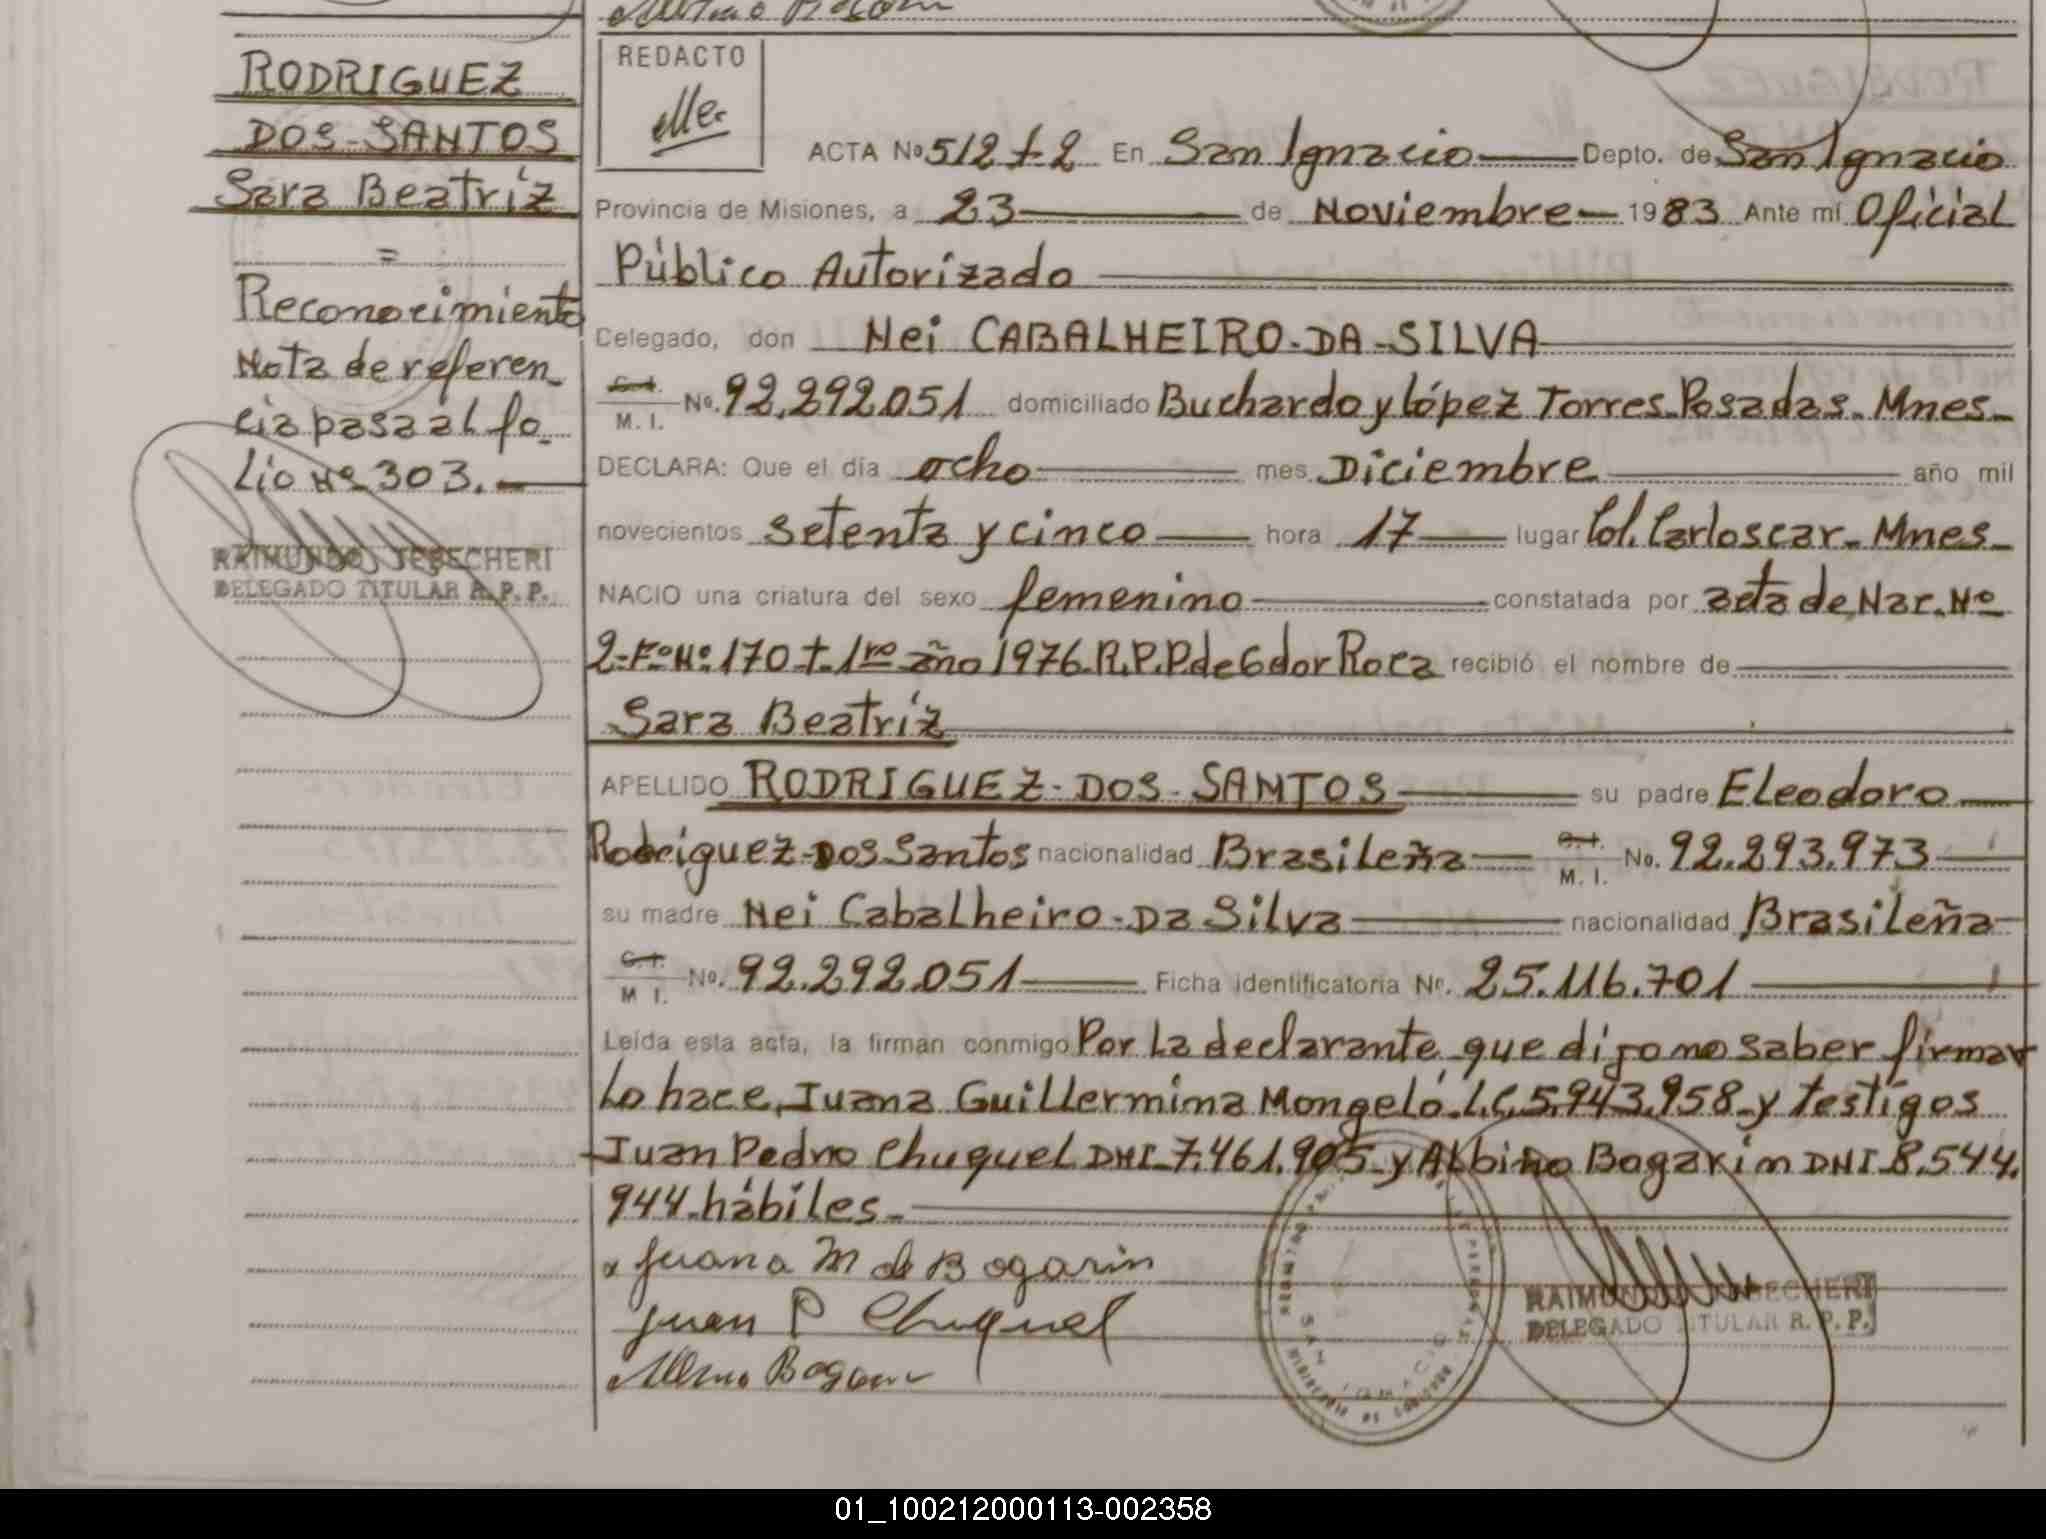 RODRIGUEZ
DOS-SANTOS
Sara Beatríz
=
Reconocimiento
Nota de referen_
cia pasa al fo_
lio Nº 303.—
RAIMUNDO JESECHERI
DELEGADO TITULAR R. P. P.
REDACTO
ACTA Nº 512 t 2 En San Ignacio Depto. de San Ignacio
Provincia de Misiones, a 23 de Noviembre 1983 Ante mí Oficial
Público Autorizado
Celegado, don Nei CABALHEIRO-DA-SILVA
C.I. M. I. Nº. 92.292.051 domiciliado Buchardo y López Torres-Posadas-Mnes-
DECLARA: Que el día ocho mes Diciembre año mil
novecientos setenta y cinco hora 17 lugar Col. Carloscar-Mnes-
NACIO una criatura del sexo femenino constatada por acta de Nac. Nº
2-Fº Nº 170 t-1ro año 1976 R.P.P de Gdor Roca recibió el nombre de
Sara Beatríz
APELLIDO RODRIGUEZ-DOS-SANTOS su padre Eleodoro
Rodriguez-Dos Santos nacionalidad Brasileña C.I. M. I. No. 92.293.973
su madre Nei Cabalheiro-Da Silva nacionalidad Brasileña
C.I. M I. Nº. 92.292.051 Ficha identificatoria Nº. 25.116.701
Leída esta acta, la firman conmigo Por La declarante que dijo no saber firmar
Lo hace, Juana Guillermina Mongeló. L.C. 5.943.958-y testigos
Juan Pedro Chuquel DNI-7.461.905-y Albino Bogarín DNI-8.544.
944-hábiles-
Juana M de Bogarin
Juan P Chuquel
Albino Bogarin
SAN IGNACIO
RAIMUNDO JESECHERI
DELEGADO TITULAR R. P. P.
01_100212000113-002358